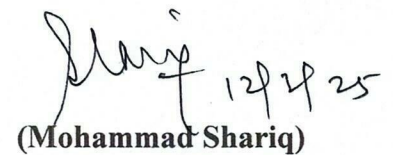 Shariq 12/2/25
(Mohammad Shariq)